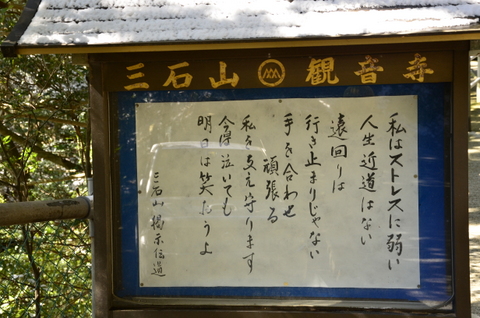 三石山観音寺
私はストレスに弱い
人生近道はない
遠回りは
行き止まりじゃない
手を合わせ
頑張る
私を支え守ります
今宵泣いても
明日は笑おうよ
三石山 掲示伝道